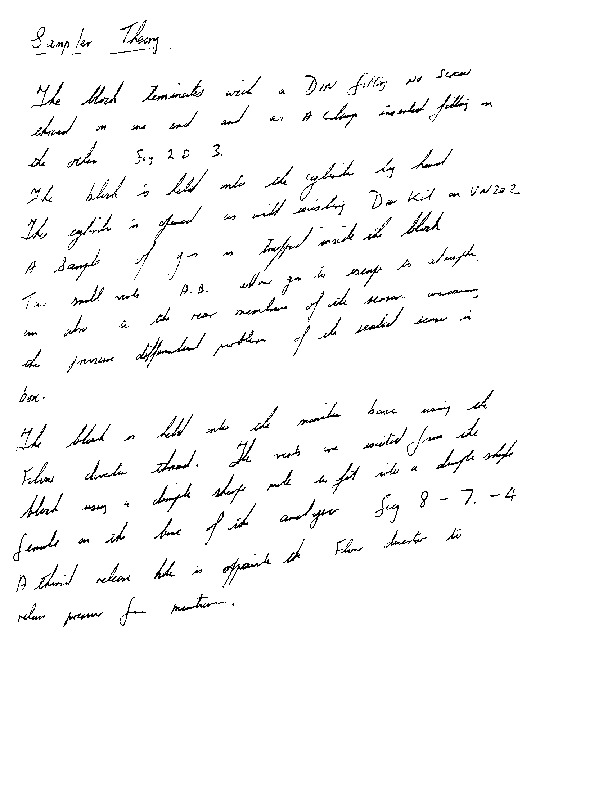 Sampler Theory
The block terminates with a DIN fitting no screw
thread on one end and as A clamp inserted fitting on
the other Fig 2 & 3.
The block is held onto the cylinder by hand
The cylinder is opened as with existing Din Kit on VN202
A Sample of gas is trapped inside the block
Two small vents A.B. allow gas to escape to atmosphere
the rear membrane of the sensor
the pressure differential problem of the sealed sensor in
box.
The block is held onto the monitor base using the
Flow director thread. The vents are exited from the
block using a dimple shape male to fit into a dimple shape
female on the base of the analyser Fig 8 - 7. - 4
A third release hole is opposite the Flow director to
release pressure for